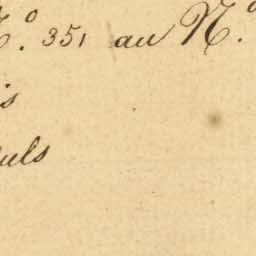 N.º 351 au N.º
is
uls